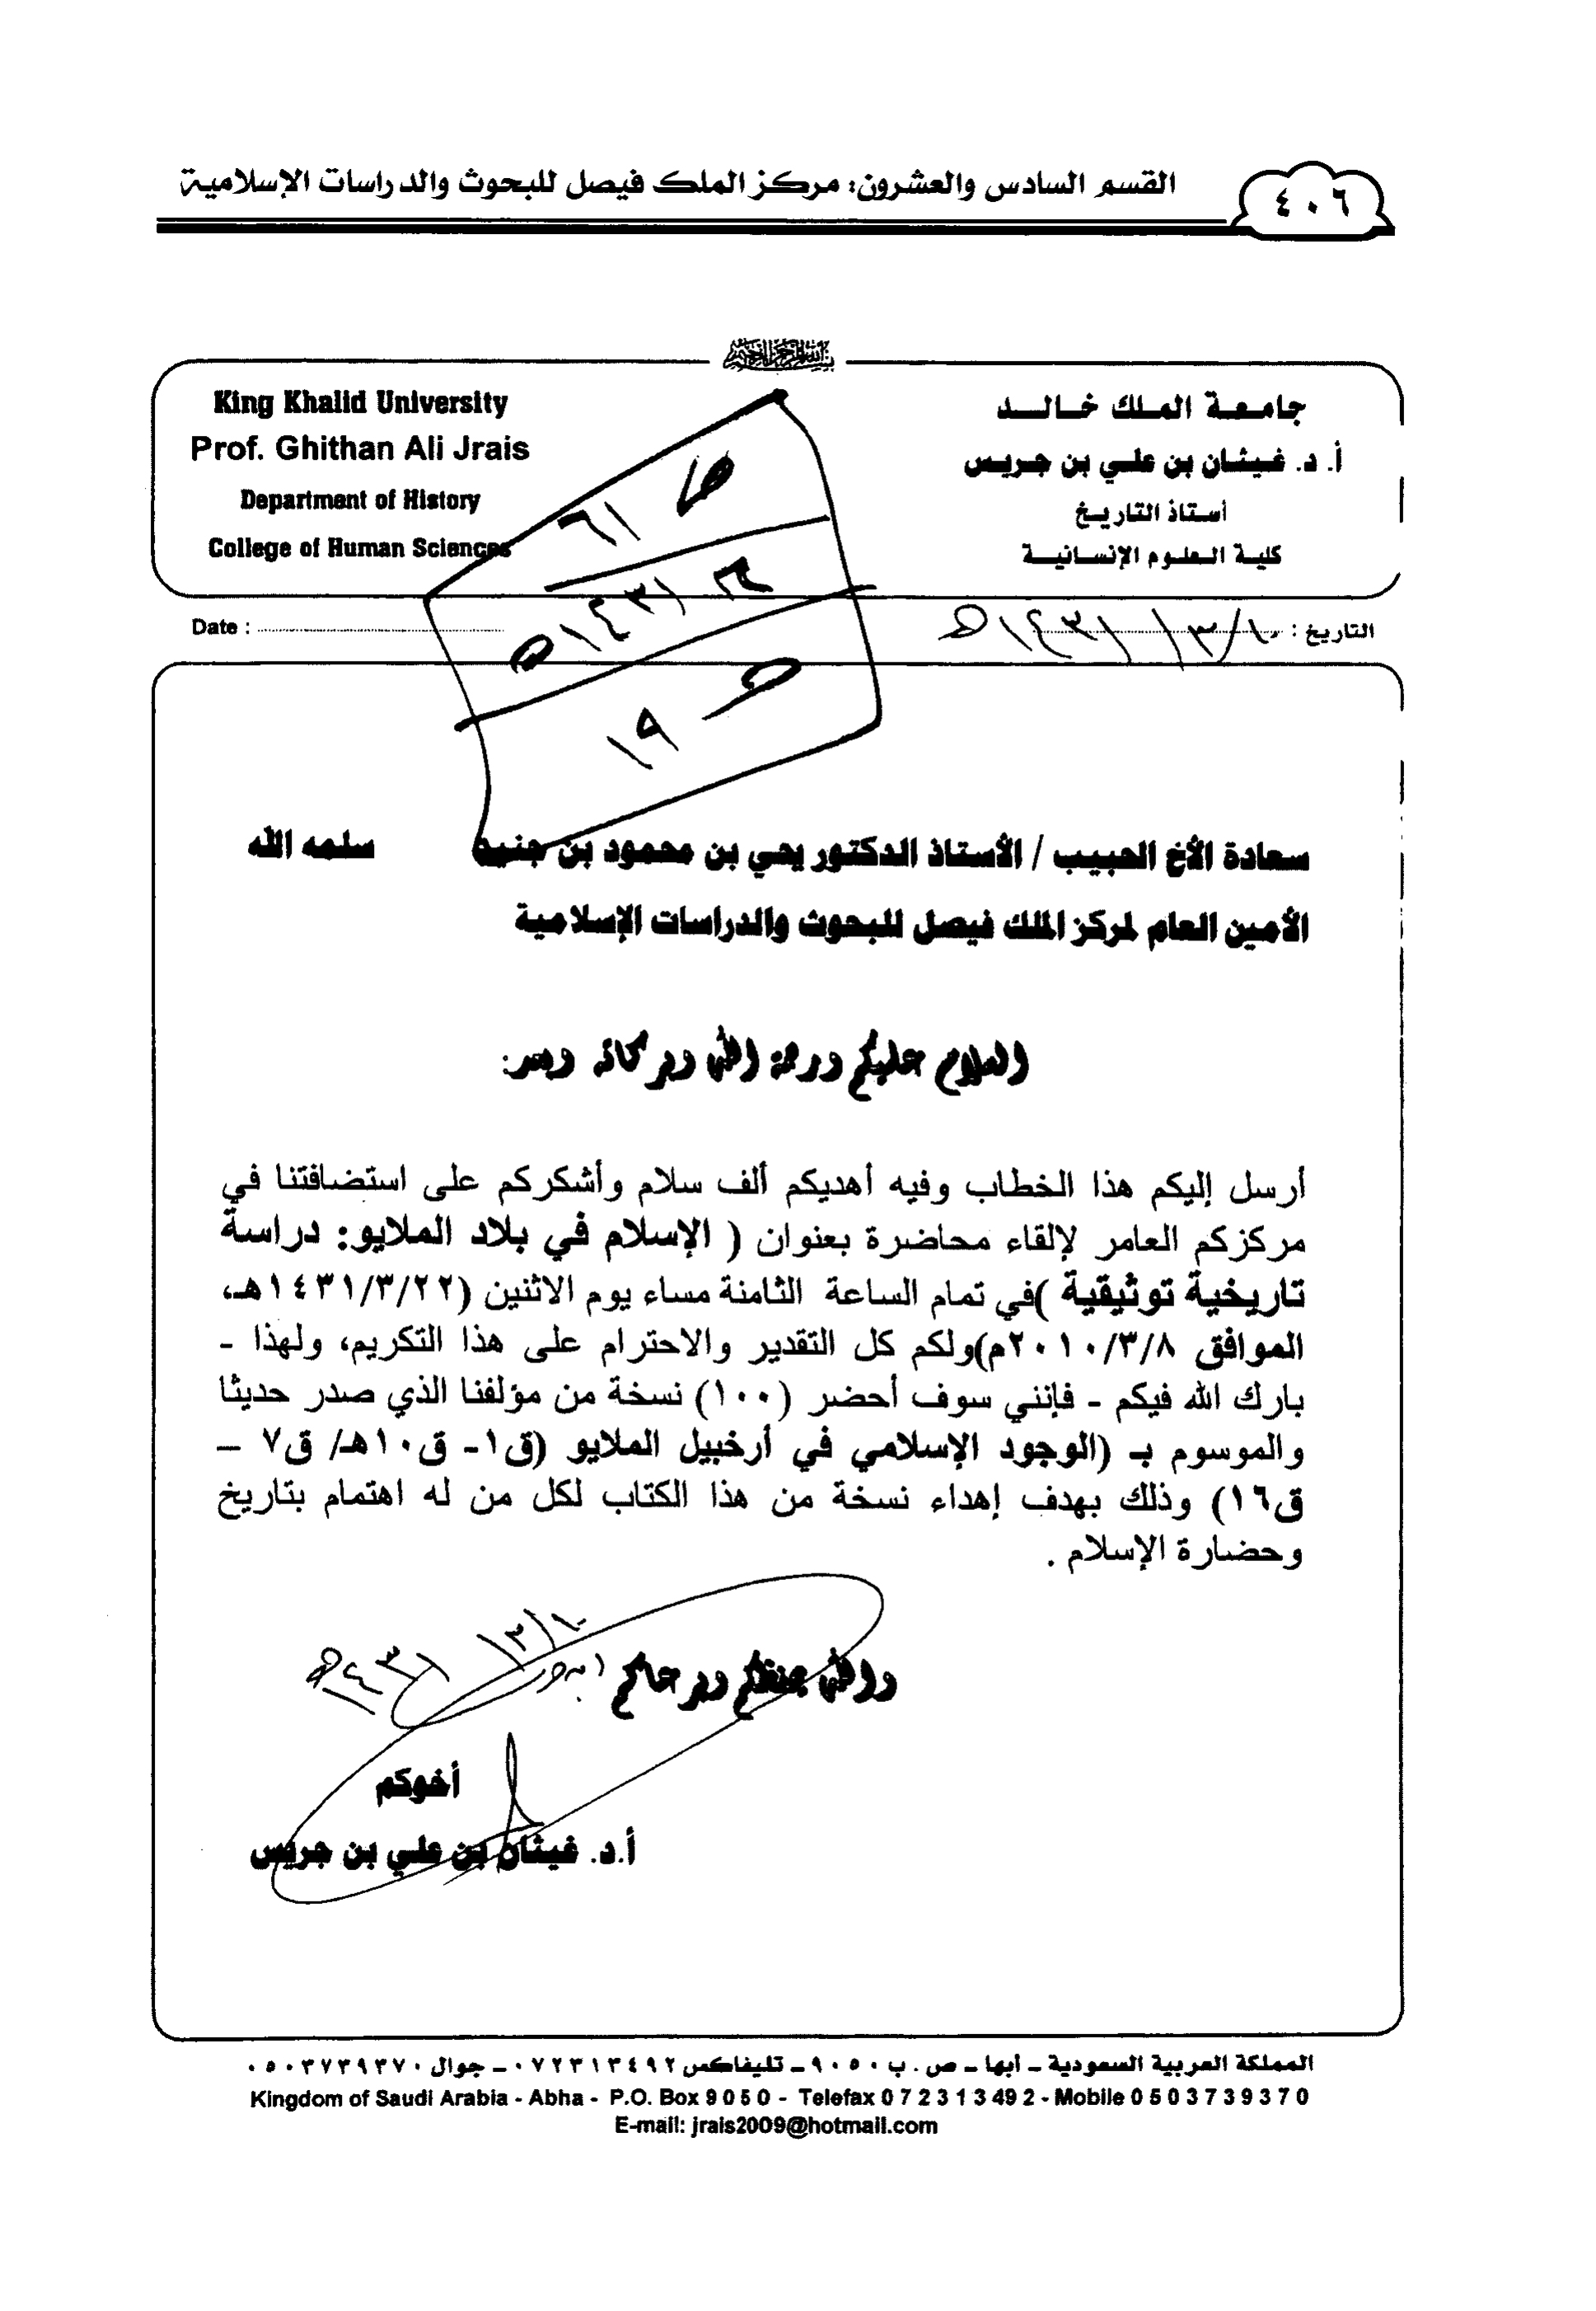 القسم السادس والعشرون: مركز الملك فيصل للبحوث والدراسات الإسلامية
٤٠٦
بسم الله الرحمن الرحيم
King Khalid University
Prof. Ghithan Ali Jrais
Department of History
College of Human Sciences
جامعة الملك خالد
أ. د. غيثان بن علي بن جريس
أستاذ التاريخ
كلية العلوم الإنسانية
٦١
١٤٣١هـ
١٩
Date :
التاريخ : ١٠/٣/١٤٣١هـ
سعادة الأخ الحبيب / الأستاذ الدكتور يحي بن محمود بن جنيد سلمه الله
الأمين العام لمركز الملك فيصل للبحوث والدراسات الإسلامية
السلام عليكم ورحمة الله وبركاته وبعد:
أرسل إليكم هذا الخطاب وفيه أهديكم ألف سلام وأشكركم على استضافتنا في
مركزكم العامر لإلقاء محاضرة بعنوان ( الإسلام في بلاد الملايو: دراسة
تاريخية توثيقية )في تمام الساعة الثامنة مساء يوم الاثنين (١٤٣١/٣/٢٢هـ،
الموافق ٢٠١٠/٣/٨م)ولكم كل التقدير والاحترام على هذا التكريم، ولهذا -
بارك الله فيكم - فإنني سوف أحضر (١٠٠) نسخة من مؤلفنا الذي صدر حديثا
والموسوم بـ (الوجود الإسلامي في أرخبيل الملايو (ق١- ق١٠هـ/ ق٧ –
ق١٦) وذلك بهدف إهداء نسخة من هذا الكتاب لكل من له اهتمام بتاريخ
وحضارة الإسلام .
والله يحفظكم ويرعاكم
أخوكم
أ.د. غيثان بن علي بن جريس
المملكة العربية السعودية – أبها – ص . ب ٩٠٥٠ – تليفاكس ٠٧٢٣١٣٤٩٢ – جوال ٠٥٠٣٧٣٩٣٧٠
Kingdom of Saudi Arabia - Abha - P.O. Box 9 0 5 0 - Telefax 0 7 2 3 1 3 49 2 - Mobile 0 5 0 3 7 3 9 3 7 0
E-mail: jrais2009@hotmail.com